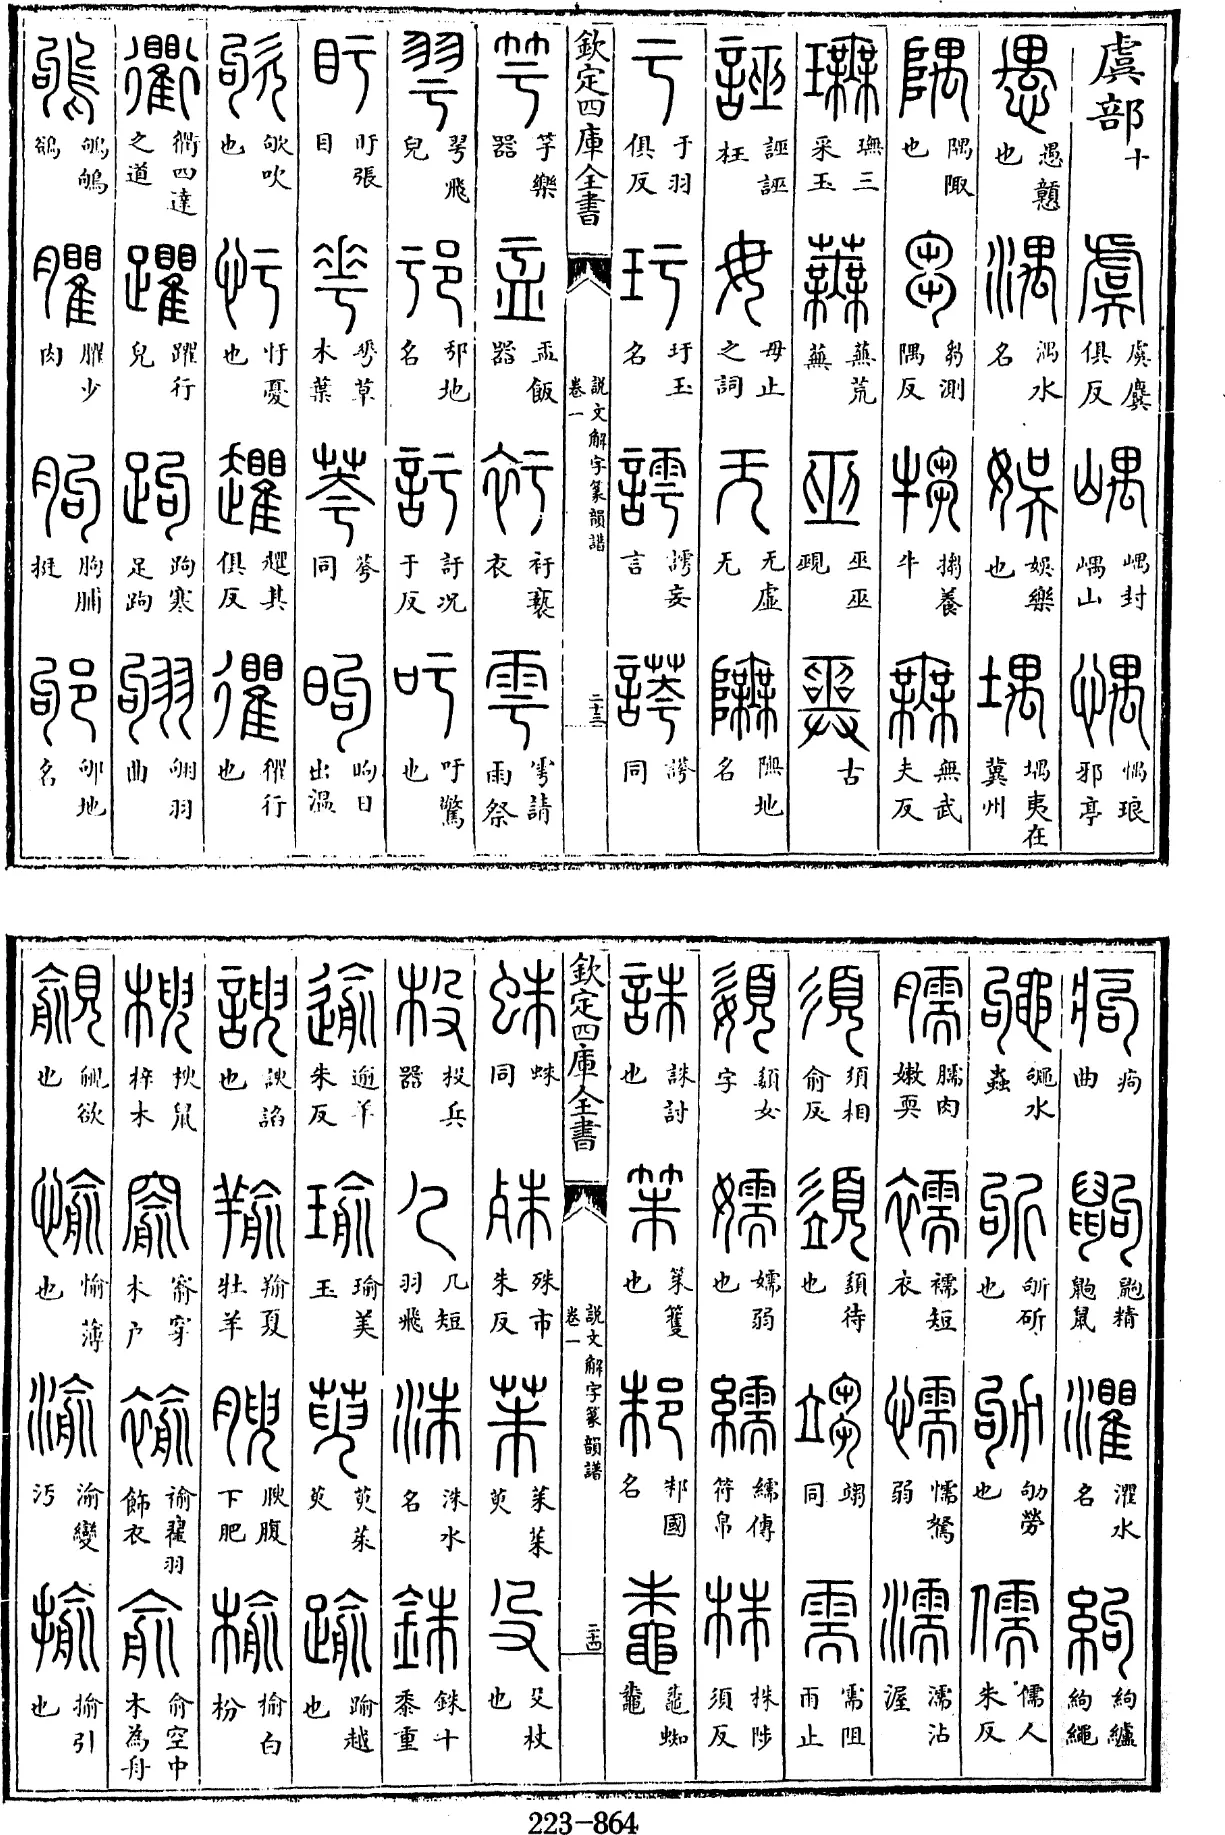 虞部十虞虞麌俱反嵎嵎封嵎山㥥㥥琅邪亭
愚愚戇也湡湡水名娛娛樂也堣堣夷在冀州
隅隅陬也芻芻測隅反犓犓養牛無無武夫反
璑璑三采玉蕪蕪荒蕪巫巫巫覡古
誣誣誣枉毋毋止之詞无无虛无地名
于于羽俱反玗玗玉名謣謣妄言同
欽定四庫全書
說文解字篆韻譜
卷一
二十三
竽竽樂器盂盂飯器衧衧褻衣雩雩請雨祭
飛皃邘邘地名訏訏況于反吁吁驚也
盱盱張目草木葉荂荂同昫昫日出溫
欨欨吹也憂也其俱反忂忂行也
衢衢四達之道躣躣行皃跔跔寒足跔翑翑羽曲
鴝鴝鴝鵒臞臞少肉朐朐脯挻邭邭地名
痀痀曲鼩鼩精鼩鼠灈灈水名絇絇纑絇繩
鼅水蟲斪斪斫也劬劬勞也儒儒人朱反
臑臑肉嫩耎襦襦短衣懦懦駑弱濡濡沾渥
須須相俞反䇓䇓待也同需需阻雨止
嬃嬃女字嬬嬬弱也繻繻傅符帛株株陟須反
誅誅討也筞也邾邾國名鼄鼄蜘鼄
欽定四庫全書
說文解字篆韻譜
卷一
二十四
蛛蛛同殊殊市朱反茱茱茱萸殳殳杖也
杸杸兵器几几短羽飛洙洙水名銖銖十黍重
逾逾羊朱反瑜瑜美玉萸萸茱萸踰踰越也
諛諛諂也羭羭夏牡羊腴腴腹下肥榆榆白枌
楰楰鼠梓木窬窬穿木戶褕褕翟羽飾衣俞俞空中木為舟
覦覦欲也愉愉薄也渝渝變污揄揄引也
223-864